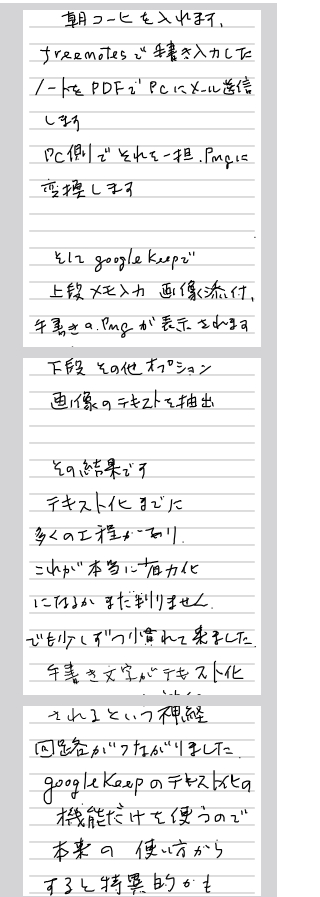 朝コーヒを入れます.
freenotesで手書き入力した
ノートをPDFでPCにメール送信
します
PC側でそれを一担.Pngに
変換します
そしてgoogle Keepで
上段メモ入力 画像添付,
手書きの.Pngが表示されます
下段 その他オプション
画像のテキストを抽出
その結果です
テキスト化までに
多くの工程があり.
これが本当に省力化
になるかまだ判りません.
でも少しずつ慣れて来ました.
手書き文字がテキスト化
されるという神経
回路がつながりました.
google Keepのテキスト化の
機能だけを使うので
本来の 使い方から
すると特異的かも